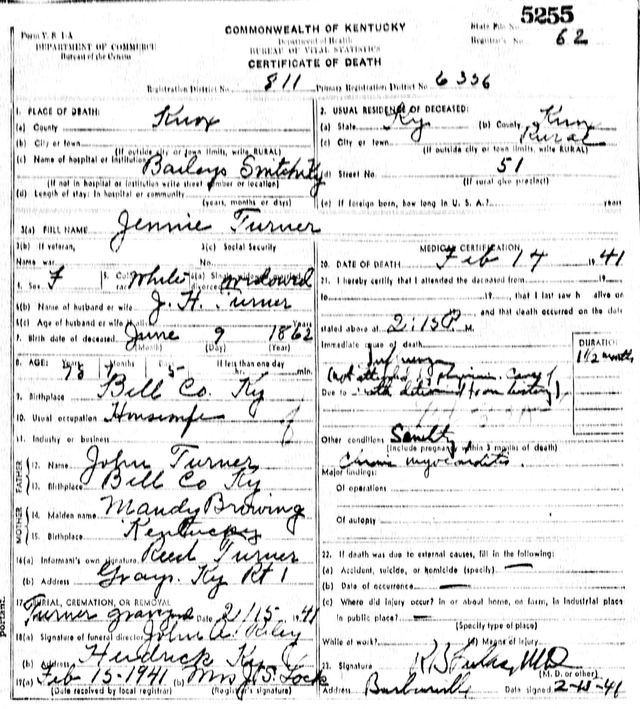 5255
Form V. S. 1-A
DEPARTMENT OF COMMERCE
Bureau of the Census
COMMONWEALTH OF KENTUCKY
Department of Health
BUREAU OF VITAL STATISTICS
CERTIFICATE OF DEATH
State File No.
Registrar's No. 62
Registration District No. 811 Primary Registration District No. 6336
1. PLACE OF DEATH:
(a) County Knox
(b) City or town
(If outside city or town limits, write RURAL)
(c) Name of hospital or institution Baileys Switch Ky
(If not in hospital or institution write street number or location)
(d) Length of stay: In hospital or community
(years, months or days)
2. USUAL RESIDENCE OF DECEASED:
(a) State Ky (b) County Knox
(c) City or town Rural
(If outside city or town limits, write RURAL)
(d) Street No. 51
(If rural give precinct)
(e) If foreign born, how long in U. S. A.? years
3(a) FULL NAME Jennie Turner
3(b) If veteran, 3(c) Social Security
Name war No.
4. Sex F 5. Color or race White 6(a) Single, widowed, married, divorced widowed
6(b) Name of husband or wife J. H. Turner
6(c) Age of husband or wife if alive Years
7. Birth date of deceased June 9 1862
(Month) (Day) (Year)
8. AGE: Years 78 Months Days 5 If less than one day
hr. min.
9. Birthplace Bell Co. Ky
10. Usual occupation Housewife
11. Industry or business
FATHER
12. Name John Turner
13. Birthplace Bell Co Ky
MOTHER
14. Maiden name Mandy Browing
15. Birthplace Kentucky
16(a) Informant's own signature Reed Turner
(b) Address Grays. Ky Rt 1
17. BURIAL, CREMATION, OR REMOVAL
Turner Date 2/15 1941
18(a) Signature of funeral director John A. Riley
(b) Address Hedrick Ky
19(a) Feb 15-1941 (b) Mrs J. S. Lock
(Date received by local registrar) (Registrar's signature)
MEDICAL CERTIFICATION
20. DATE OF DEATH Feb 14 1941
21. I hereby certify that I attended the deceased from 19
to 19 , that I last saw h alive on
19 , and that death occurred on the date
stated above at 2:15 P M.
Immediate cause of death
DURATION
1 1/2 month
Influenza
(not attended by physician. Cause of
Due to death determined from history)
Other conditions Senility
(Include pregnancy within 3 months of death)
Chronic myocarditis.
Major findings:
Of operations
Of autopsy
22. If death was due to external causes, fill in the following:
(a) Accident, suicide, or homicide (specify) —
(b) Date of occurrence —
(c) Where did injury occur? In or about home, on farm, in industrial place
in public place? —
(Specify type of place)
While at work? (e) Means of injury
23. Signature MD
(M. D. or other)
Address Barbourville Date signed 2-15-41
portant.